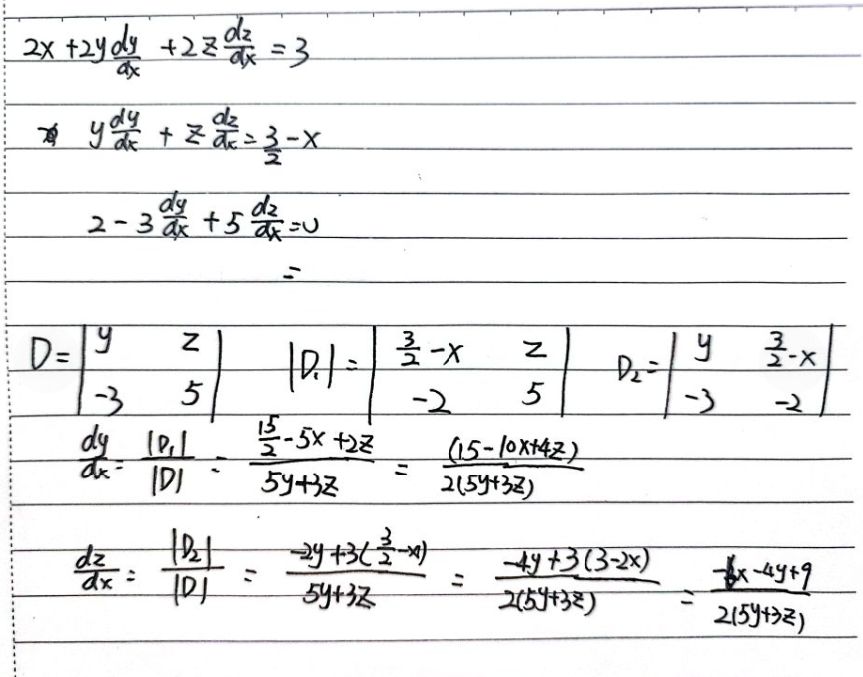 2x + 2y dy/dx + 2z dz/dx = 3
y dy/dx + z dz/dx = 3/2 - x
2 - 3 dy/dx + 5 dz/dx = 0
=
D = | y z ; -3 5 | |D₁| = | 3/2 - x z ; -2 5 | D₂ = | y 3/2 - x ; -3 -2 |
dy/dx = |D₁|/|D| = (15/2 - 5x + 2z)/(5y+3z) = (15 - 10x + 4z)/(2(5y+3z))
dz/dx = |D₂|/|D| = (-2y + 3(3/2 - x))/(5y+3z) = (-4y + 3(3-2x))/(2(5y+3z)) = (-6x - 4y + 9)/(2(5y+3z))